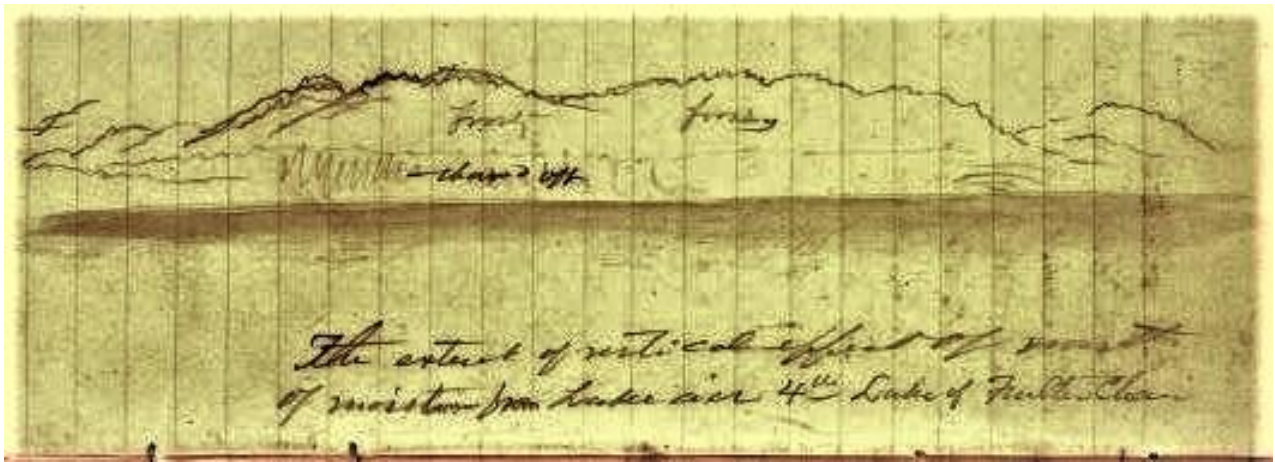 frost frosty
cleared off
The extent of vertical effect of
of moisture from Lake air 4th Lake of Fulton Chain